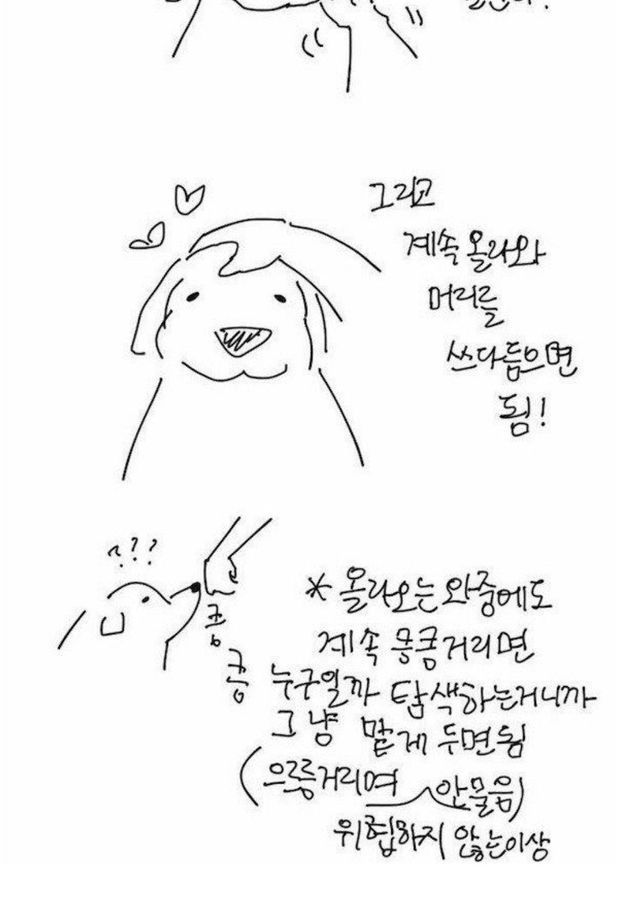 그리고
계속 올라와
머리를
쓰다듬으면
됨!
???
킁
킁
* 올라오는 와중에도
계속 킁킁거리면
누구일까 탐색하는거니까
그냥 맡게 두면됨
(으릉거리며 안물음)
위협하지 않는이상